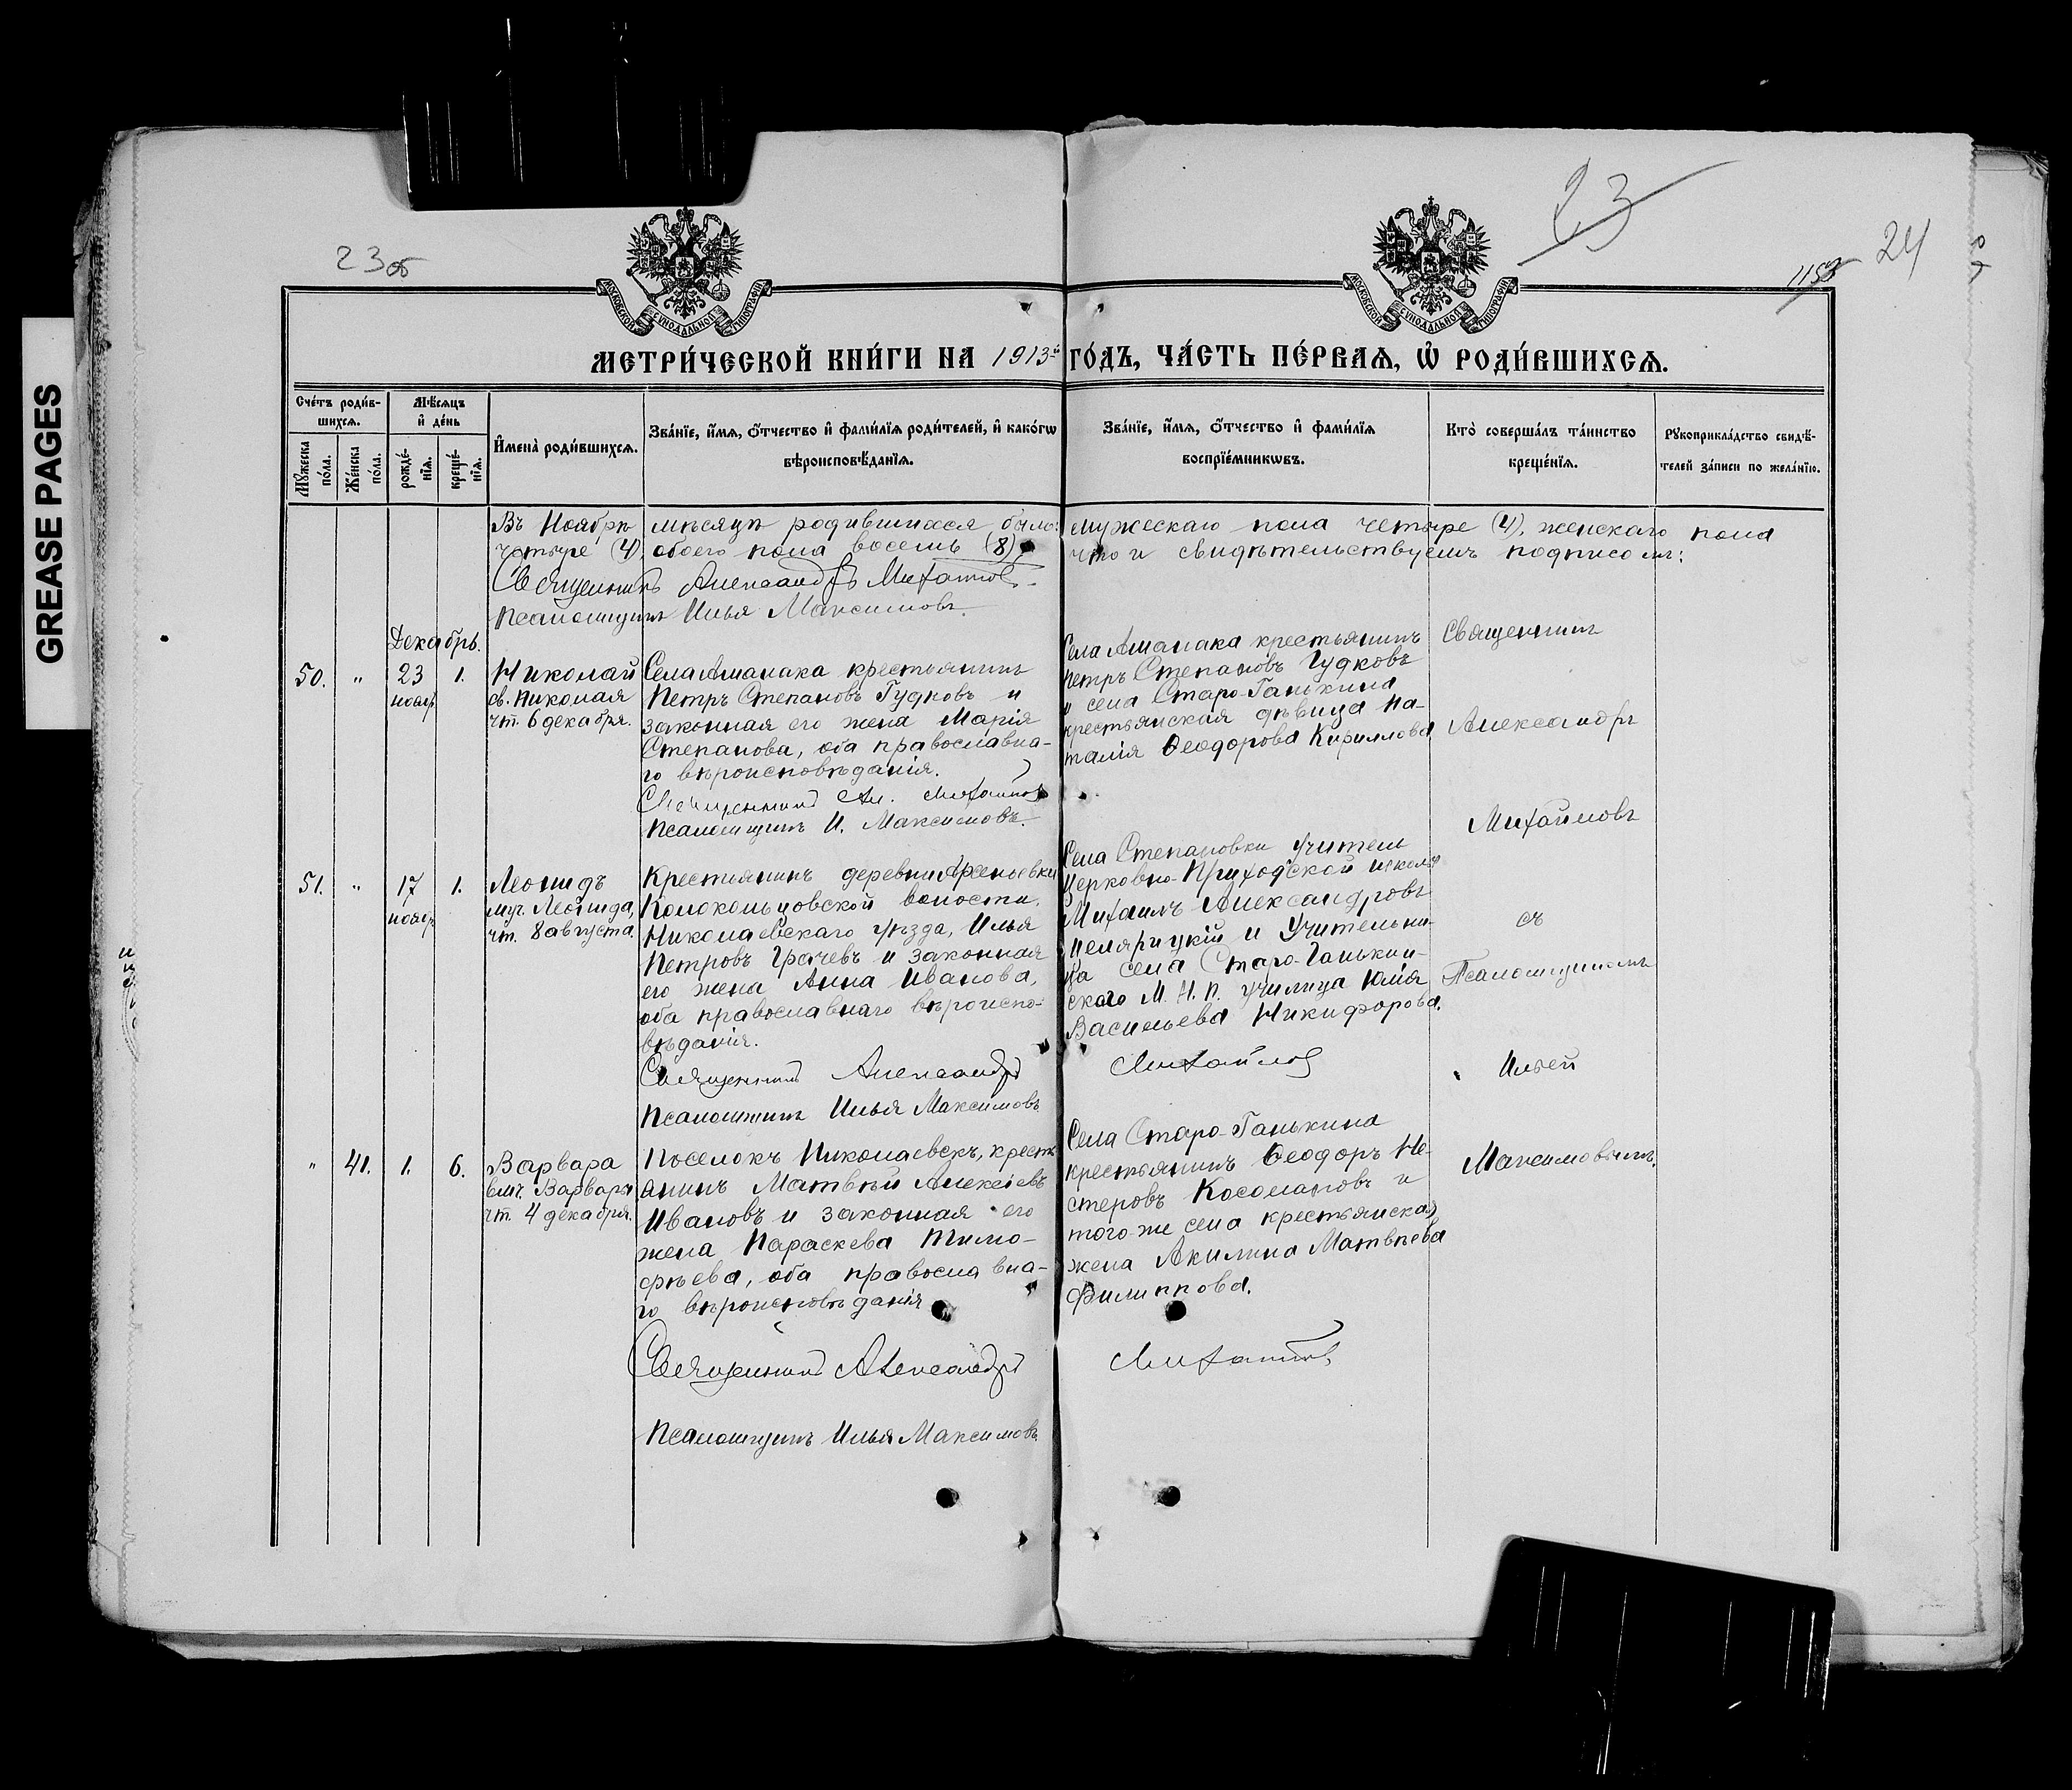 GREASE PAGES
23об
23
24
1153
МОСКОВСКОЙ СѴНОДАЛЬНОЙ ТИПОГРАФІИ
МОСКОВСКОЙ СѴНОДАЛЬНОЙ ТИПОГРАФІИ
МЕТРИ́ЧЕСКОЙ КНИ́ГИ НА 1913й ГО́ДЪ, ЧА́СТЬ ПЕ́РВАѦ, Ѿ РОДИ́ВШИХСѦ.
Сче́тъ роди́в-
шихсѧ.
Мꙋ́жеска по́ла.
Же́нска по́ла.
Мѣ́сѧцъ
и҆ де́нь
рожде́-
нїѧ.
креще́-
нїѧ.
И҆мена̀ роди́вшихсѧ.
Зва́нїе, и҆́мѧ, ѻ҆́тчество и҆ фами́лїѧ роди́телей, и҆ како́гѡ
вѣроисповѣ́данїѧ.
Зва́нїе, и҆́мѧ, ѻ҆́тчество и҆ фами́лїѧ
воспрїе́мникѡвъ.
Кто̀ соверша́лъ та́инство
креще́нїѧ.
Рꙋкоприкла́дство свидѣ́-
телей за́писи по жела́нїю.
Въ Ноябрѣ мѣсяцѣ родившихся было: мужескаго пола четыре (4), женскаго пола
четыре (4) обоего пола восемь (8), что и свидѣтельствуемъ подписом:
Священникъ Александръ Михайловъ.
Псаломщикъ Илья Максимовъ.
Декабрь.
50. " 23 1.
нояб.
Николай
св. Николая
чт. 6 декабря.
Села Аманака крестьянинъ
Петръ Степановъ Гудковъ и
законная его жена Марія
Степанова, оба православна-
го вѣроисповѣданія.
Священникъ Ал. Михайловъ
Псаломщикъ И. Максимовъ.
Села Аманака крестьянинъ
Петръ Степановъ Гудковъ
и села Старо-Ганькина
крестьянская дѣвица На-
талія Ѳеодорова Кириллова
Священникъ
Александръ
Михайловъ
51. " 17 1.
нояб.
Леонидъ
муч. Леонида,
чт. 8 августа.
Крестьянинъ деревни Арсеньевки
Колокольцовской волости,
Николаевскаго уѣзда, Илья
Петровъ Грачевъ и законная
его жена Анна Иванова,
оба православнаго вѣроиспо-
вѣданія.
Священникъ Александръ Михайловъ
Псаломщикъ Илья Максимовъ
Села Степановки учитель
Церковно-Приходской школы
Михаилъ Александровъ
и Учительни-
ца села Старо-Ганькин-
скаго М. Н. П. училища Юлія
Васильева Никифорова.
съ
Псаломщикомъ
Ильей
" 41. 1. 6.
Варвара
влмч. Варвары
чт. 4 декабря.
Поселокъ Николаевскъ, кресть-
янинъ Матвѣй Алексіевъ
Ивановъ и законная его
жена Параскева Тимо-
фѣева, оба православна-
го вѣроисповѣданія
Села Старо-Ганькина
крестьянинъ Ѳеодоръ Не-
стеровъ Косолаповъ и
того-же села крестьянская
жена Акилина Матвѣева
Филиппова.
Максимовымъ.
Священникъ Александръ Михайловъ
Псаломщикъ Илья Максимовъ